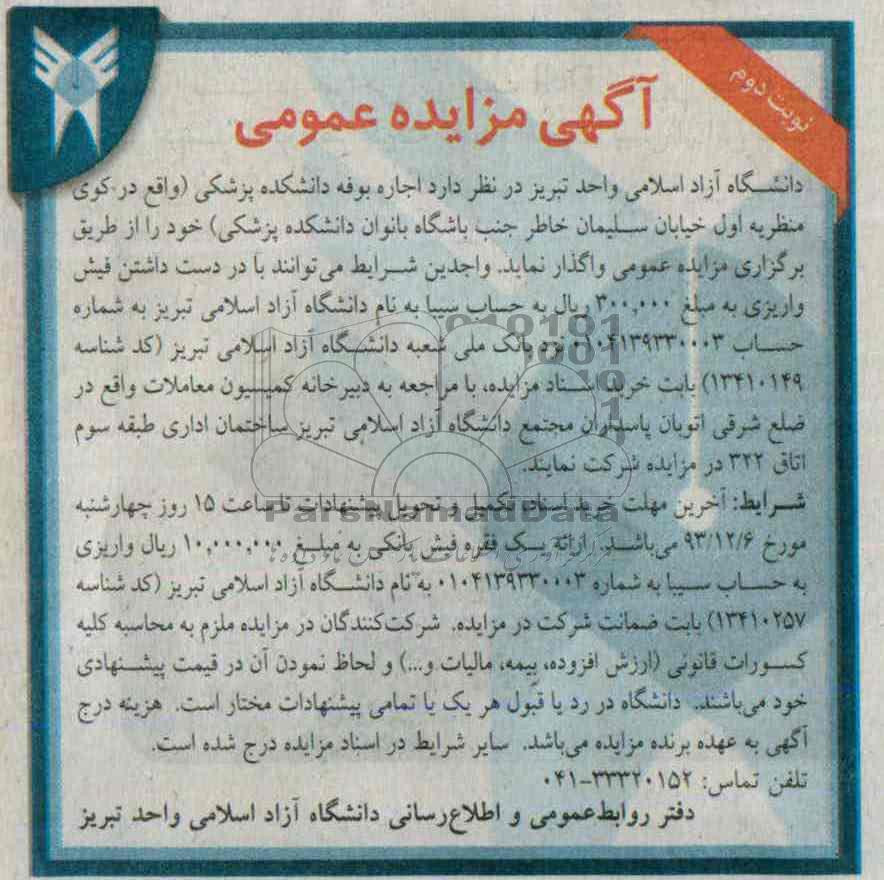 نوبت دوم
آگهی مزایده عمومی
دانشگاه آزاد اسلامی واحد تبریز در نظر دارد اجاره بوفه دانشکده پزشکی (واقع در کوی
منظریه اول خیابان سلیمان خاطر جنب باشگاه بانوان دانشکده پزشکی) خود را از طریق
برگزاری مزایده عمومی واگذار نماید. واجدین شرایط می‌توانند با در دست داشتن فیش
واریزی به مبلغ ۳۰۰,۰۰۰ ریال به حساب سیبا به نام دانشگاه آزاد اسلامی تبریز به شماره
حساب ۰۱۰۴۱۳۹۳۳۰۰۰۳ نزد بانک ملی شعبه دانشگاه آزاد اسلامی تبریز (کد شناسه
۱۳۴۱۰۱۴۹) بابت خرید اسناد مزایده، با مراجعه به دبیرخانه کمیسیون معاملات واقع در
ضلع شرقی اتوبان پاسداران مجتمع دانشگاه آزاد اسلامی تبریز ساختمان اداری طبقه سوم
اتاق ۳۲۲ در مزایده شرکت نمایند.
شرایط: آخرین مهلت خرید اسناد، تکمیل و تحویل پیشنهادات تا ساعت ۱۵ روز چهارشنبه
مورخ ۹۳/۱۲/۶ می‌باشد. ارائه یک فقره فیش بانکی به مبلغ ۱۰,۰۰۰,۰۰۰ ریال واریزی
به حساب سیبا به شماره ۰۱۰۴۱۳۹۳۳۰۰۰۳ به نام دانشگاه آزاد اسلامی تبریز (کد شناسه
۱۳۴۱۰۲۵۷) بابت ضمانت شرکت در مزایده. شرکت‌کنندگان در مزایده ملزم به محاسبه کلیه
کسورات قانونی (ارزش افزوده، بیمه، مالیات و...) و لحاظ نمودن آن در قیمت پیشنهادی
خود می‌باشند. دانشگاه در رد یا قبول هر یک یا تمامی پیشنهادات مختار است. هزینه درج
آگهی به عهده برنده مزایده می‌باشد. سایر شرایط در اسناد مزایده درج شده است.
تلفن تماس: ۳۳۳۲۰۱۵۲-۰۴۱
دفتر روابط‌عمومی و اطلاع‌رسانی دانشگاه آزاد اسلامی واحد تبریز
ParsNamadData